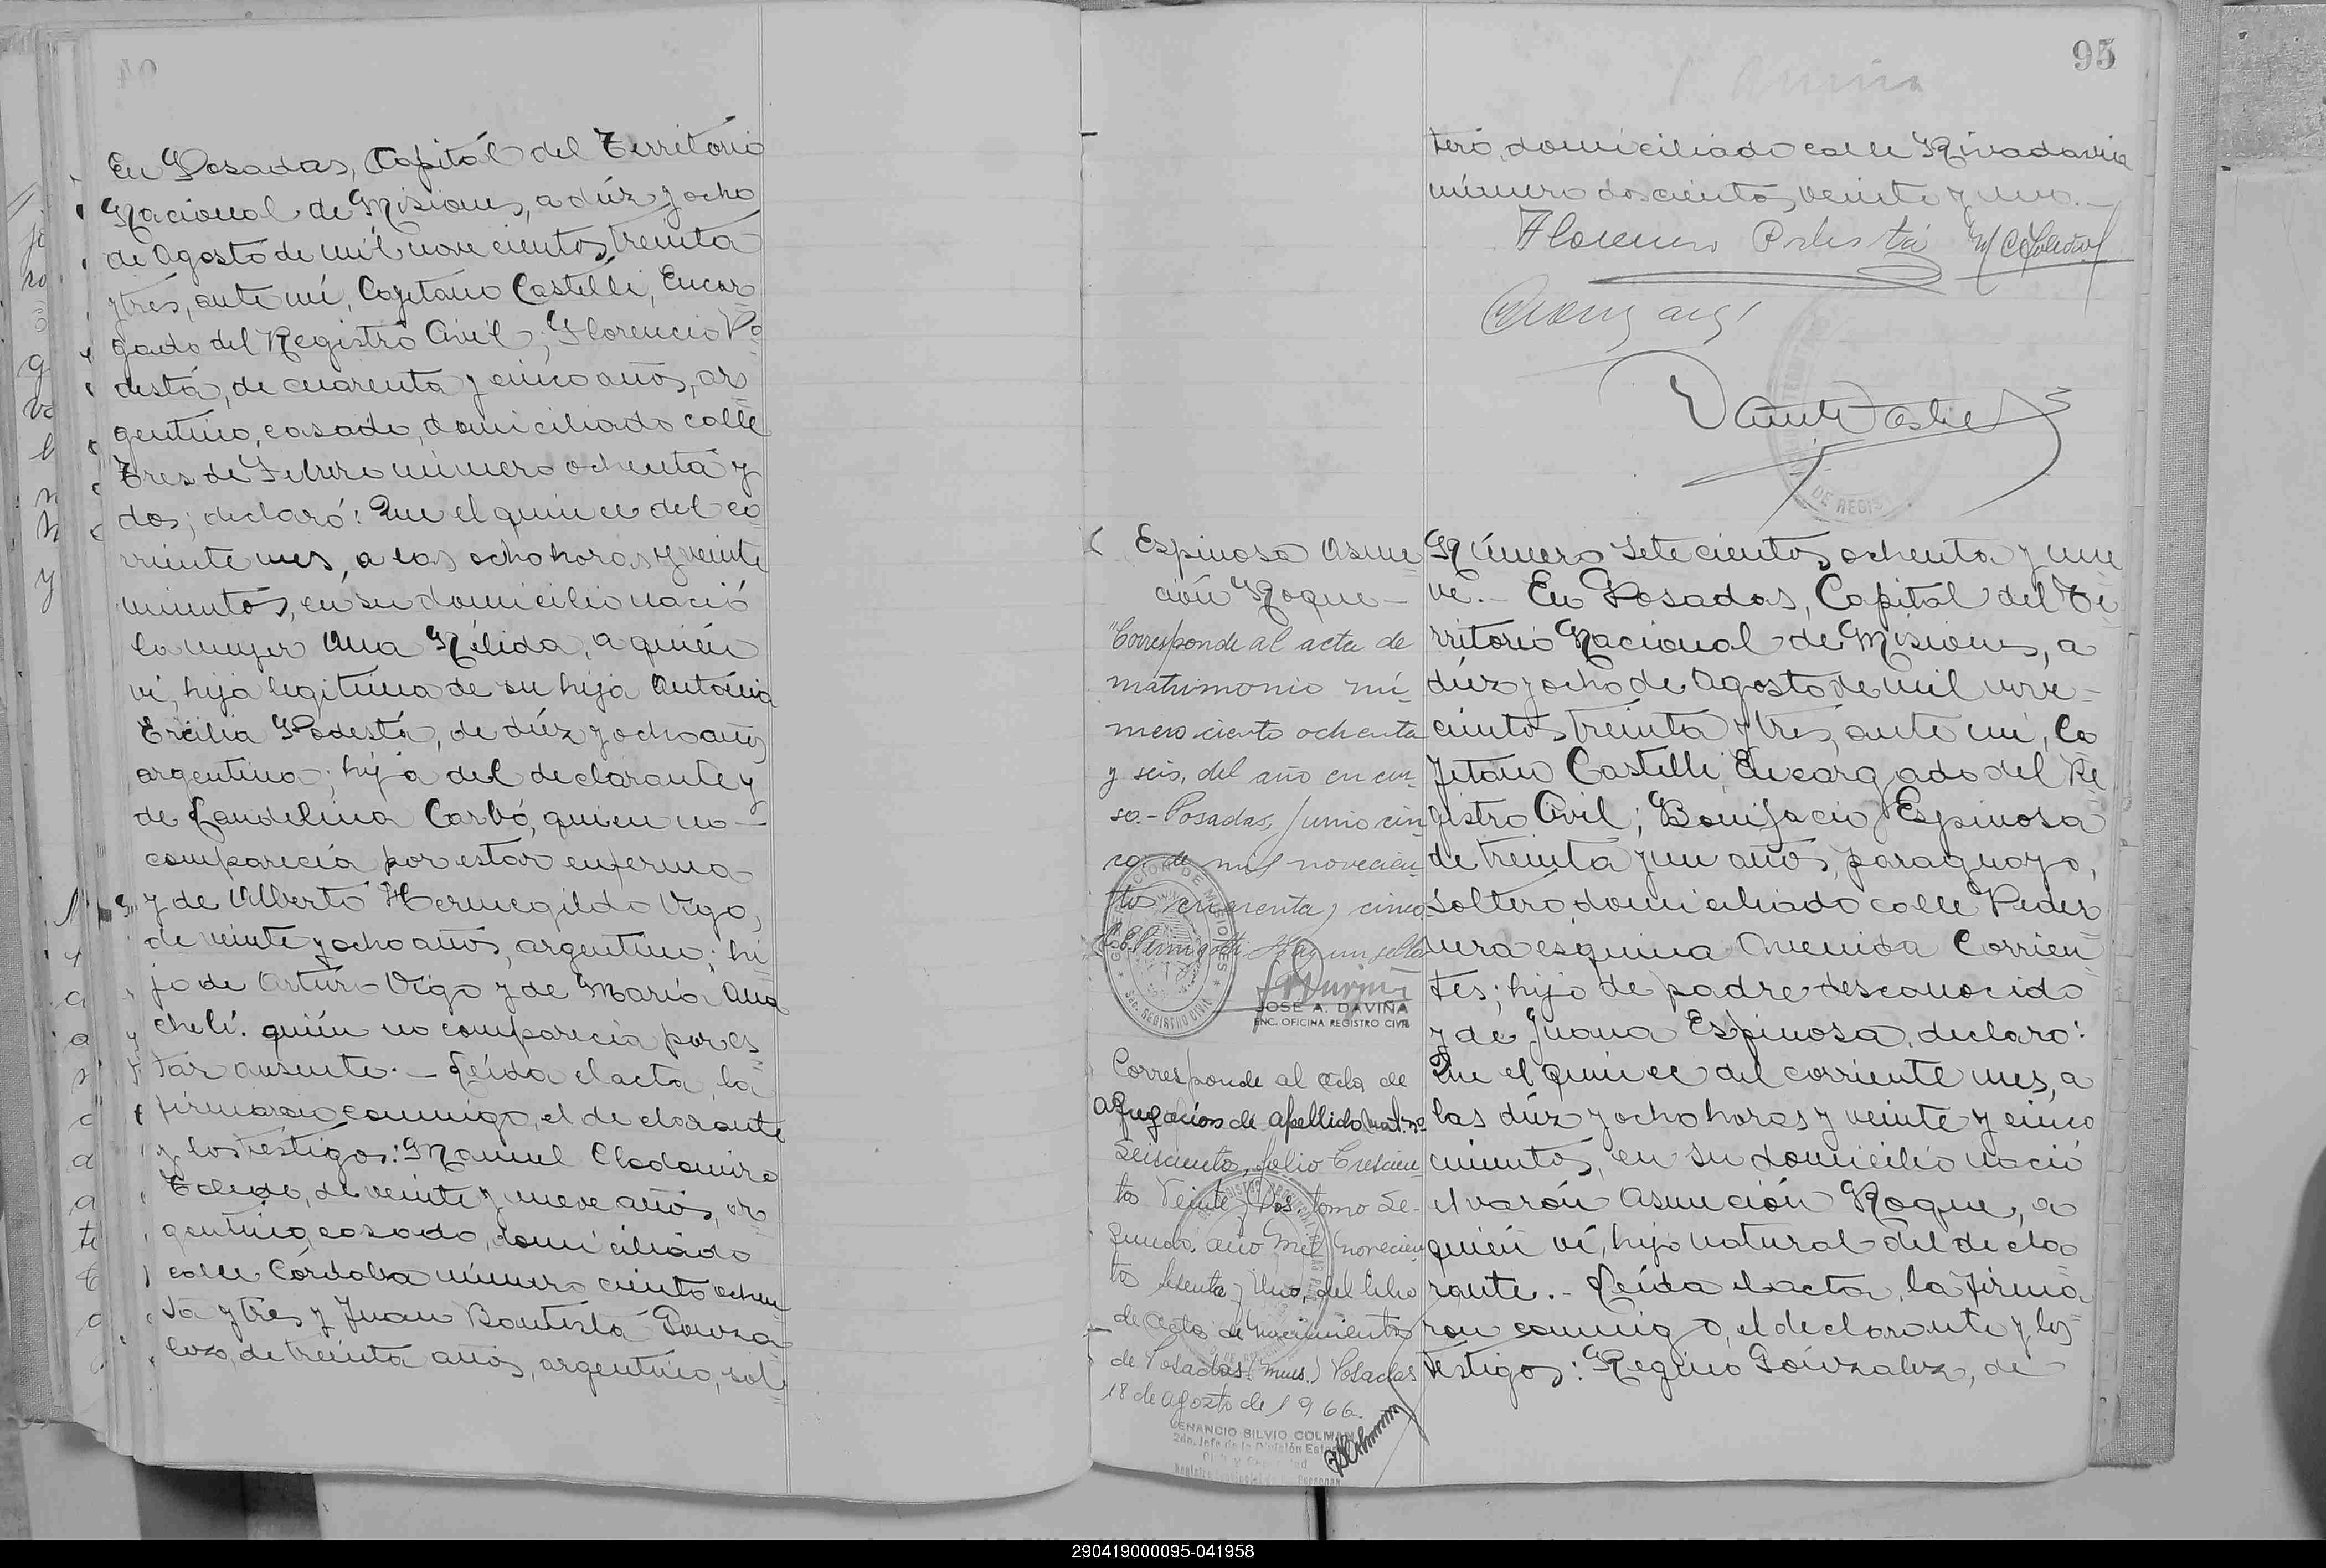 En Posadas, Capital del Territorio
Nacional de Misiones, a diez y ocho
de Agosto de mil novecientos treinta
y tres, ante mí, Cayetano Castelli, Encar
gado del Registro Civil; Florencio Po
destá, de cuarenta y cinco años, ar
gentino, casado, domiciliado calle
Tres de Febrero número ochenta y
dos; declaró: Que el quince del co
rriente mes, a las ocho horas y veinte
minutos, en su domicilio nació
la mujer Ana Nélida, a quién
ví, hija legitima de su hija Antonia
Ercilia Podestá, de diez y ocho años
argentina; hija del declarante y
de Candelina Carbó, quien no
comparecia por estar enferma
y de Alberto Hermegildo Vigo,
de veinte y ocho años, argentino; hi
jo de Arturo Vigo y de María Ana
cheli. quién no comparecia por es
tar ausente. — Leída el acta, la
firmaron conmigo, el declarante
y los testigos: Manuel Clodomiro
Toledo, de veinte y nueve años, ar
gentino, casado, domiciliado
calle Córdoba número ciento ochen
ta y tres y Juan Bautista Gonza
lez, de treinta años, argentino, sol
95
tero, domiciliado calle Rivadavia
número doscientos veinte y uno. —
Florencio Podestá M C Toledo
DE REGIS
Espinosa Asun
ción Roque —
"Corresponde al acta de
matrimonio nú-
mero ciento ochenta
y seis, del año en cur-
so. - Posadas, Junio cin
co de mil novecien
tos cuarenta y cinco
Hay un sello
GOBERNACION DE MISIONES
SEC. REGISTRO CIVIL
JOSE A. DAVIÑA
ENC. OFICINA REGISTRO CIVIL
Corresponde al acta de
agregación de apellido mat. nº
Seiscientos, folio Trescien
to Veinte y Dos, tomo Se-
gundo, año Mil novecien
to Sesenta y Uno, del libro
de acta de nacimiento
de Posadas (Mnes.) Posadas
18 de agosto de 1966.
VENANCIO SILVIO COLMAN
2do. Jefe de la División
Número Setecientos ochenta y nue
ve. — En Posadas, Capital del Te
rritorio Nacional de Misiones, a
diez y ocho de Agosto de mil nove-
cientos treinta y tres, ante mí, Ca
yetano Castelli, Encargado del Re
gistro Civil; Bonifacio Espinosa
de treinta y un años, paraguayo,
soltero, domiciliado calle Peder
nera esquina Avenida Corrien
tes; hijo de padre desconocido
y de Juana Espinosa, declaró:
Que el quince del corriente mes, a
las diez y ocho horas y veinte y cinco
minutos, en su domicilio nació
el varón Asunción Roque, a
quién ví, hijo natural del decla
rante. - Leída el acta, la firma
ron conmigo, el declarante y los
testigos: Regino Gonzalez, de
290419000095-041958